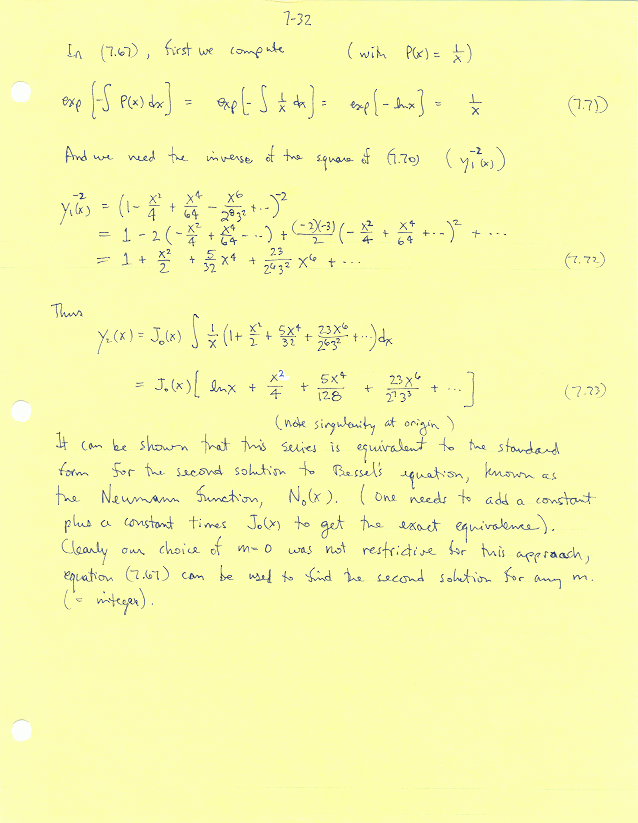 7-32
In (7.67), first we compute (with P(x) = 1/x)
exp[-∫ P(x) dx] = exp[-∫ 1/x dx] = exp[-lnx] = 1/x (7.71)
And we need the inverse of the square of (7.70) (y₁⁻²(x))
y₁⁻²(x) = (1 - x²/4 + x⁴/64 - x⁶/2⁸3² + ··)⁻²
= 1 - 2(-x²/4 + x⁴/64 - ··) + (-2)(-3)/2 (-x²/4 + x⁴/64 + ··)² + ···
= 1 + x²/2 + 5/32 x⁴ + 23/2⁶3² x⁶ + ··· (7.72)
Thus
y₂(x) = J₀(x) ∫ 1/x (1 + x²/2 + 5x⁴/32 + 23x⁶/2⁶3² + ··) dx
= J₀(x) [ lnx + x²/4 + 5x⁴/128 + 23x⁶/2⁷3³ + ··· ] (7.73)
(note singularity at origin)
It can be shown that this series is equivalent to the standard
form for the second solution to Bessel's equation, known as
the Neumann function, N₀(x). (One needs to add a constant
plus a constant times J₀(x) to get the exact equivalence).
Clearly our choice of m=0 was not restrictive for this approach,
equation (7.67) can be used to find the second solution for any m.
(= integer).